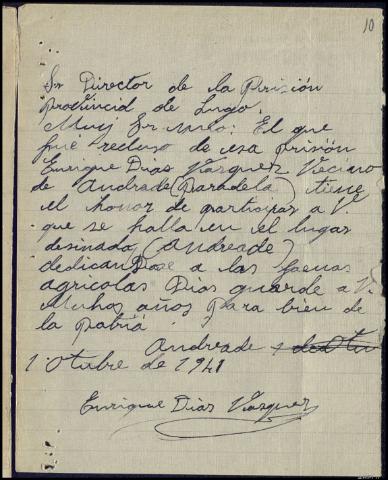 10
Sr Director de la Prisión
Provincial de Lugo.
Muy Sr mio: El que
fué recluso de esa prisión
Enrique Dias Vazquez Vecino
de Andrade (Paradela) tiene
el honor de participar a V.
que se halla en el lugar
desinado (Andreade)
dedicanDose a las faenas
agricolas Dios guarde a V.
Muchos años para bien de
la patria
Andreade
1. Otubre de 1941
Enrique Dias Vazquez